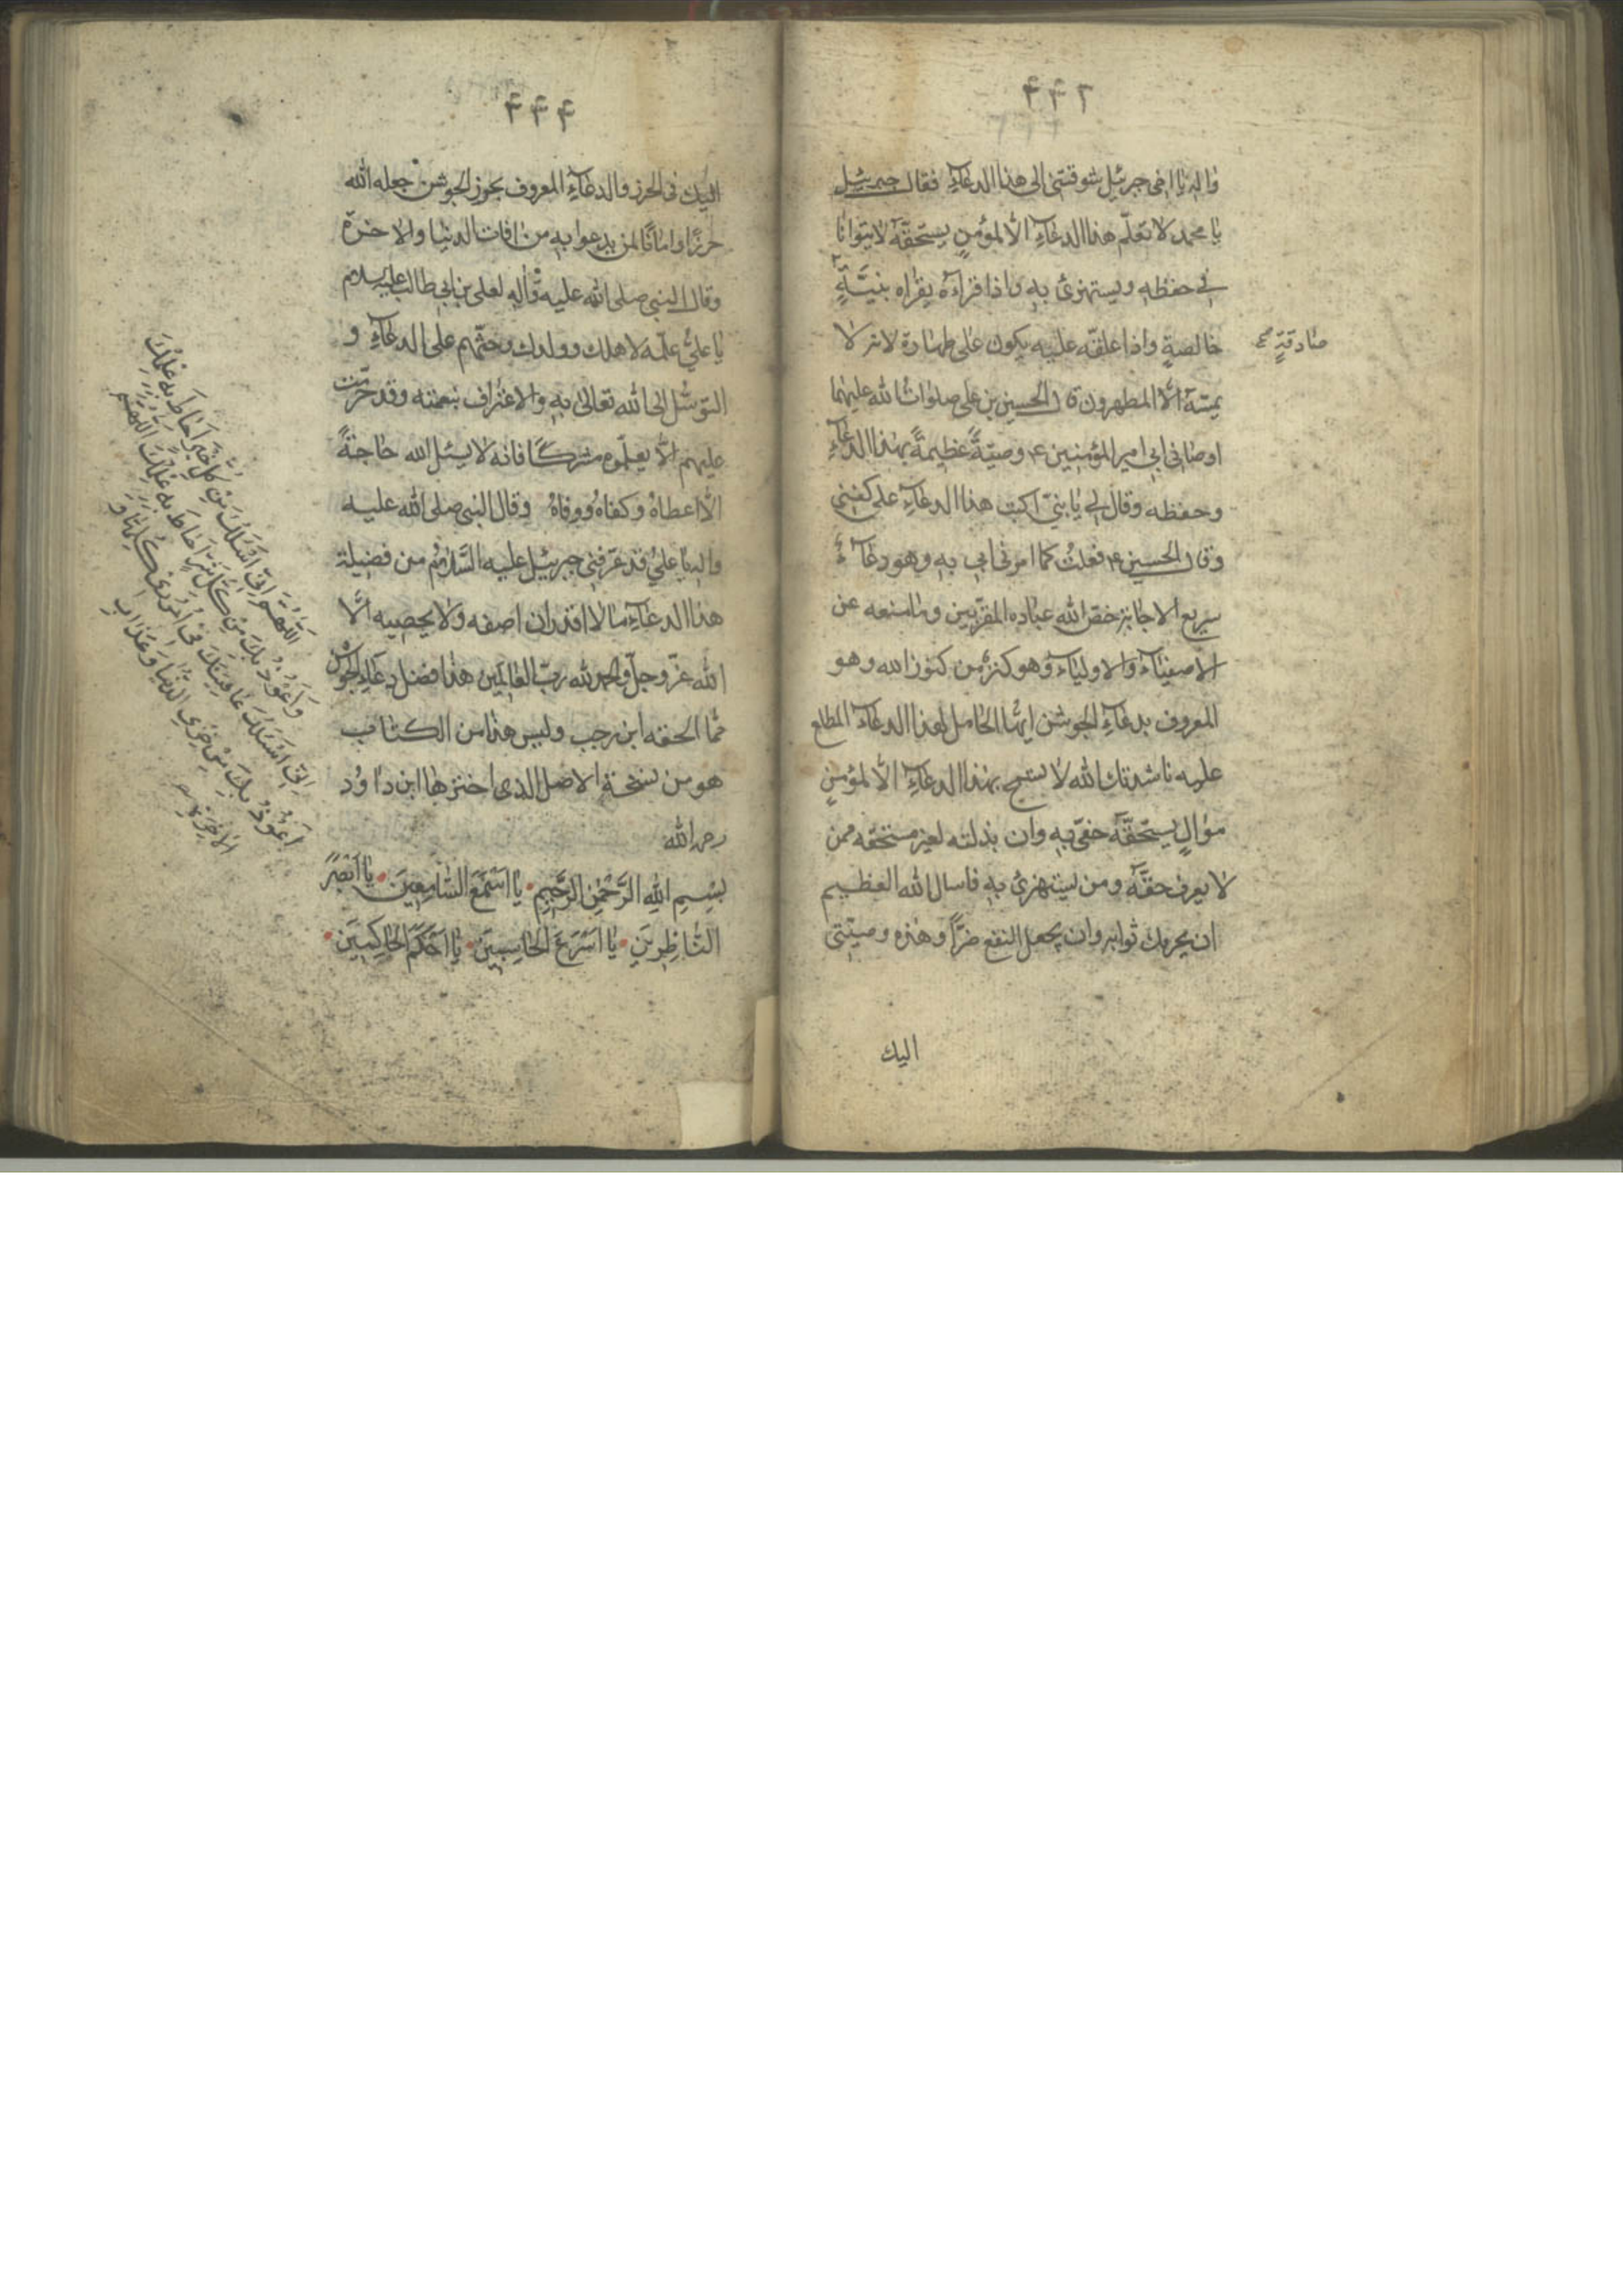 واله يا اخى جبرئيل شوقتنى الى هذا الدعاء فقال جبرئيل
يا محمد لا تعلّم هذا الدعاء الّا لمؤمنٍ يستحقّه لا يتوانا
فى حفظه ويستهزئ به واذا قراءه يقراه بنيّةٍ
خالصةٍ واذا علقه عليه يكون على طهارة لانه لا
صادقةٍ
يمسّه الّا المطهرون قال الحسين بن على صلوات الله عليهما
اوصانى ابى امير المؤمنين ع وصيّةً عظيمةً بهذا الدعاء
وحفظه وقال لى يا بنىّ اكتب هذا الدعاء على كفنى
وقال الحسين ع فعلتُ كما امرنى ابى به وهو دعاءٌ
سريع الاجابة خصّ الله عباده المقرّبين وما منعه عن
الاصفياء والاولياء وهو كنز من كنوز الله وهو
المعروف بدعاء الجوشن ايها الحامل لهذا الدعاء المطلع
عليه ناشدتك الله لا تسمح بهذا الدعاء الّا لمؤمنٍ
موالٍ يستحقّه حفىّ به وان بذلته لغير مستحقه ممن
لا يعرف حقّه ومن يستهزئ به فاسال الله العظيم
ان يحرمك ثوابه وان يجعل النفع ضرّاً وهذه وصيّتى
اليك
٤٤٤
اليك فى الحرز والدعاء المعروف بحرز الجوشن جعله الله
حرزًا وامانًا لمن يدعوا به من افات الدنيا والاخرة
وقال النبى صلى الله عليه وآله لعلى بن ابى طالب عليه السلام
يا علىّ علّمه لاهلك وولدك وحثّهم على الدعاء و
التوسّل الى الله تعالى به والاعتراف بنعمته وقد حرّمت
عليهم الّا يعلّموه مشركًا فانه لا يسئل الله حاجةً
الّا اعطاه وكفاه ووقاه وقال النبى صلى الله عليه
واله يا علىّ قد عرّفنى جبرئيل عليه السّلام من فضيلة
هذا الدعاء ما لا اقدر ان اصفه ولا يحصيه الّا
الله عزّ وجلّ والحمد لله ربّ العالمين هذا فضل دعاء الجوشن
مما الحقه ابن رجب وليس هذا من الكتاب
هو من نسخة الاصل الذى اختزها ابن داود
رحمه الله
بِسْمِ اللهِ الرَّحْمٰنِ الرَّحِيمِ يا اَسْمَعَ السّامِعِينَ يا اَبْصَرَ
النّاظِرِينَ يا اَسْرَعَ الحاسِبِينَ يا اَحْكَمَ الحاكِمِينَ
اَللّهُمَّ اِنّى اَسْئَلُكَ مِنْ كُلِّ خَيْرٍ اَحاطَ بِهِ عِلْمُكَ
وَاَعُوذُ بِكَ مِنْ كُلِّ شَرٍّ اَحاطَ بِهِ عِلْمُكَ اَللّهُمَّ
اِنّى اَسْئَلُكَ عافِيَتَكَ فى اُمُورى كُلِّها وَ
اَعُوذُ بِكَ مِنْ خِزْىِ الدُّنْيا وَعَذابِ
الآخِرَةِ